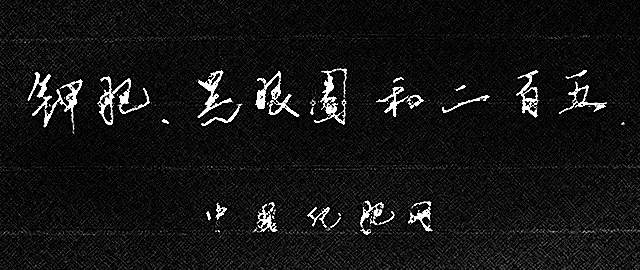 钾肥、黑眼圈和二百五.
中国化肥网